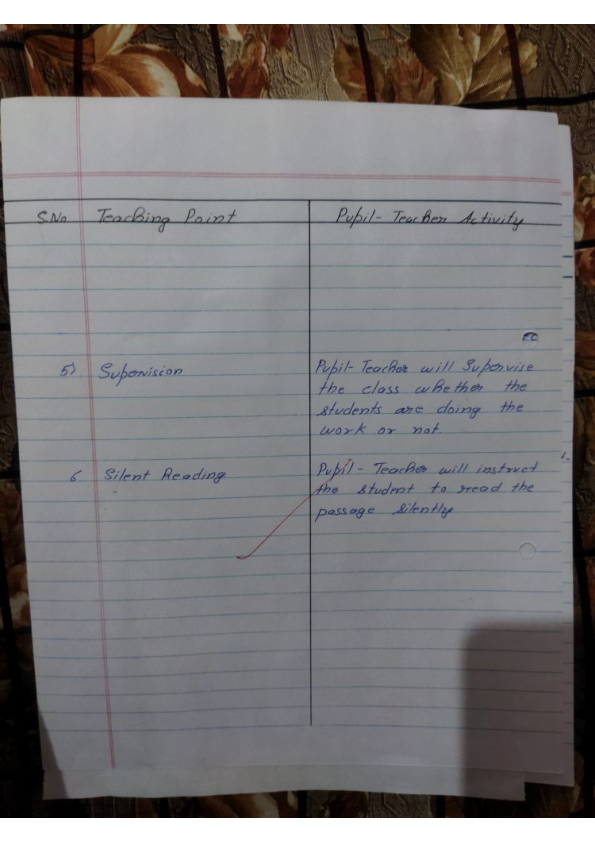 S.No Teaching Point Pupil-Teacher Activity
5) Supervision Pupil-Teacher will Supervise
the class whether the
students are doing the
work or not.
6 Silent Reading Pupil-Teacher will instruct
the student to read the
passage silently